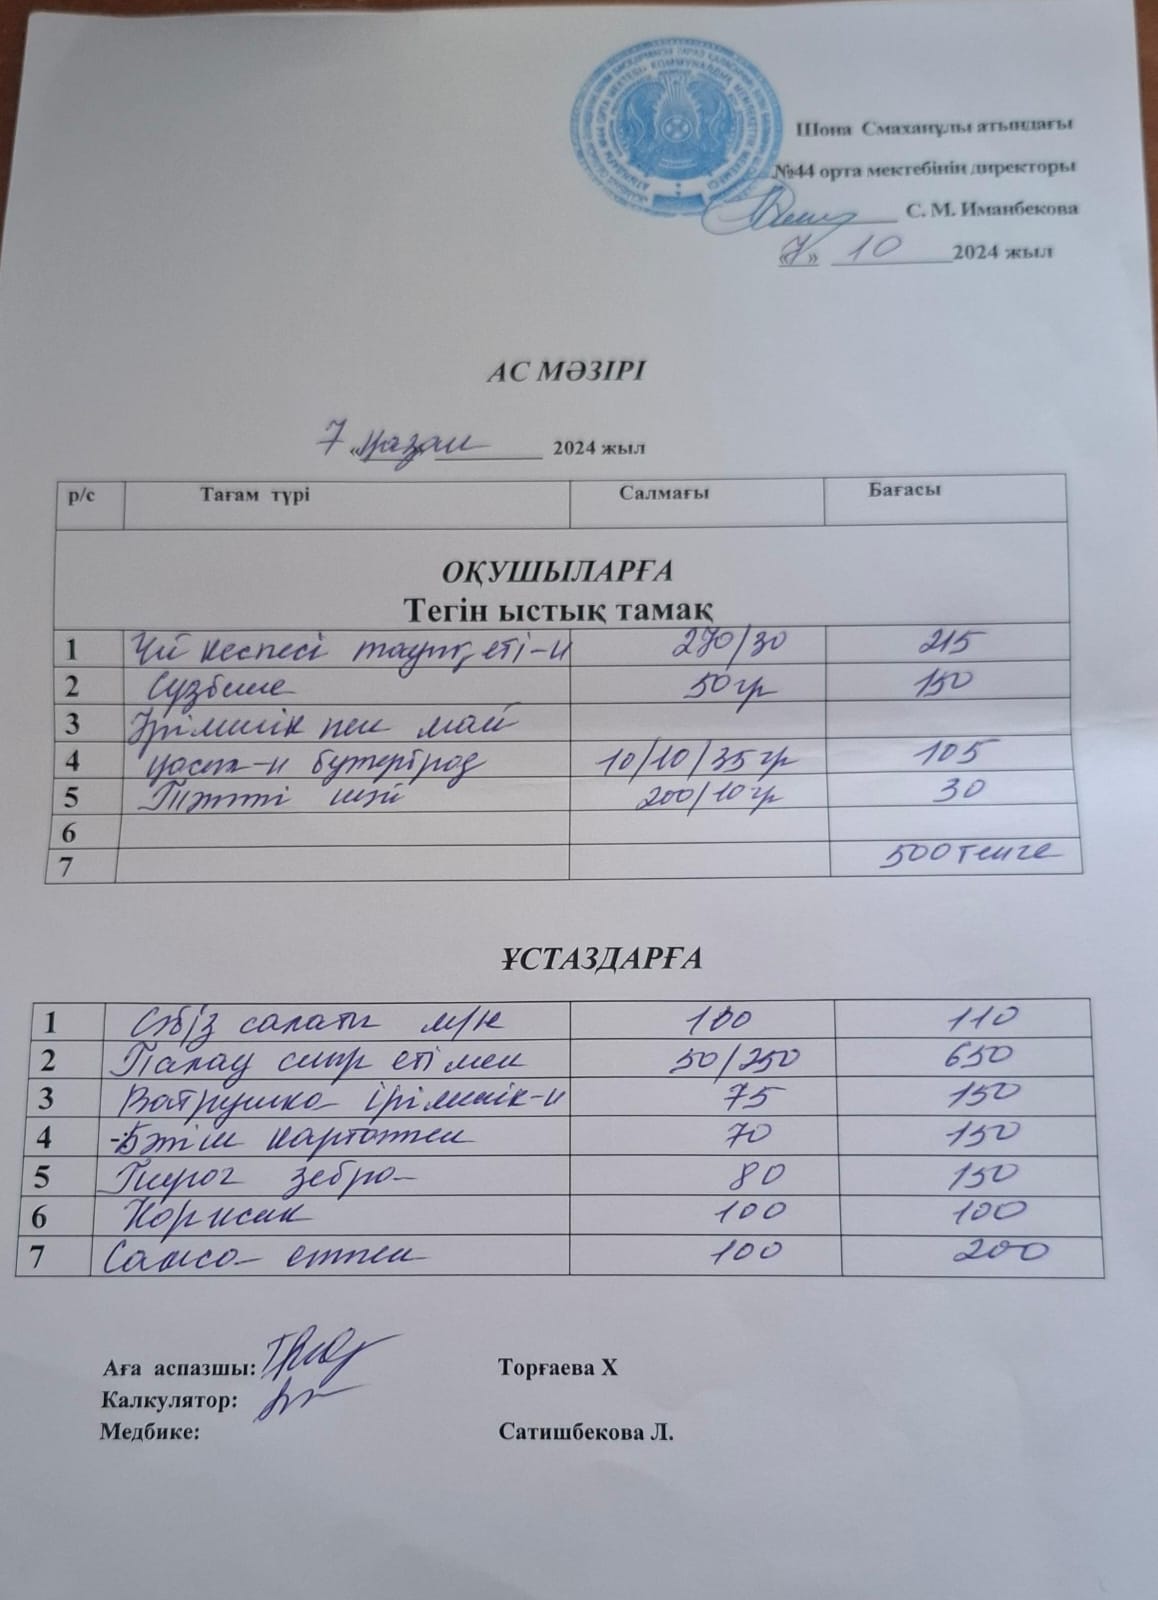 Шона Смаханұлы атындағы
№44 орта мектебінің директоры
С. М. Иманбекова
«7» 10 2024 жыл
АС МӘЗІРІ
7 «қазан» 2024 жыл
р/с Тағам түрі Салмағы Бағасы
ОҚУШЫЛАРҒА
Тегін ыстық тамақ
1 Үй кеспесі тауық еті-н 270/30 215
2 Сүзбеше 50гр 150
3 Ірімшік пен май
4 қосып-н бутерброд 10/10/35гр 105
5 Тәтті шәй 200/10гр 30
6
7 500 тенге
ҰСТАЗДАРҒА
1 Сәбіз салаты м/н 100 110
2 Палау сиыр етімен 50/250 650
3 Ватрушка ірімшік-н 75 150
4 Бәтіш картоппен 70 150
5 Пирог зебра 80 150
6 Корисак 100 100
7 Самса етпен 100 200
Аға аспазшы: Торғаева Х
Калкулятор:
Медбике: Сатишбекова Л.